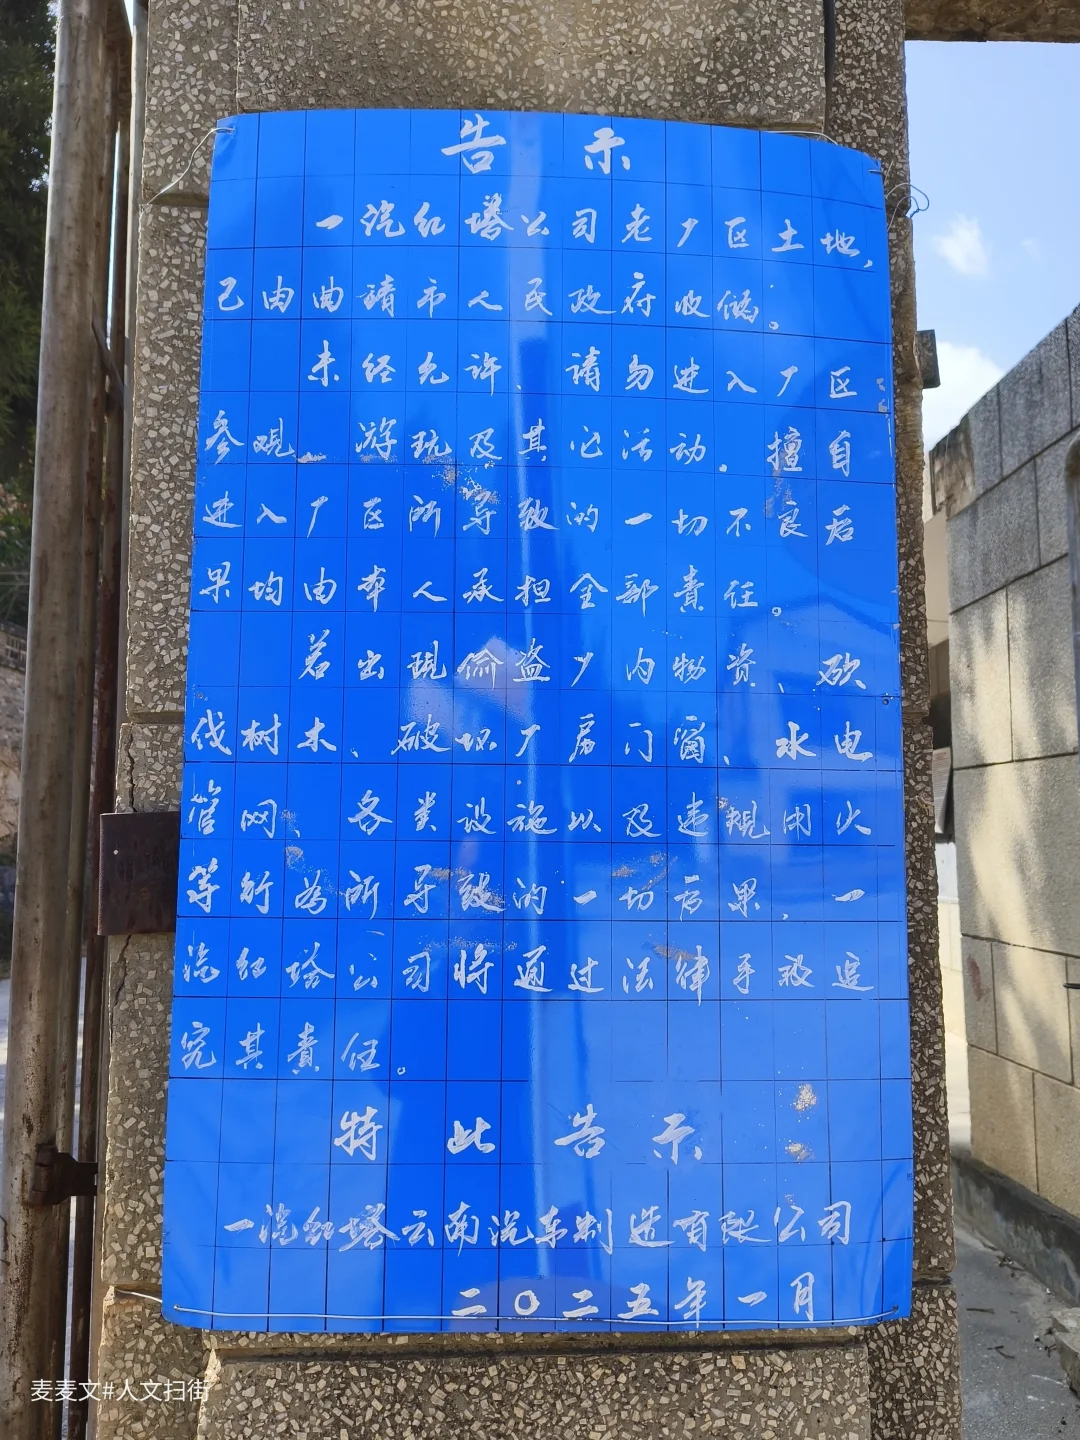 告示
一汽红塔公司老厂区土地,
已由曲靖市人民政府收储。
未经允许、请勿进入厂区
参观、游玩及其它活动.擅自
进入厂区所导致的一切不良后
果均由本人承担全部責任。
若出现偷盗厂内物资、砍
伐树木、破坏厂房门窗、水电
管网、各类设施以及违规用火
等行为所导致的一切后果、一
汽红塔公司将通过法律手段追
究其責任。
特此告示
一汽红塔云南汽车制造有限公司
二〇二五年一月
麦麦文#人文扫街